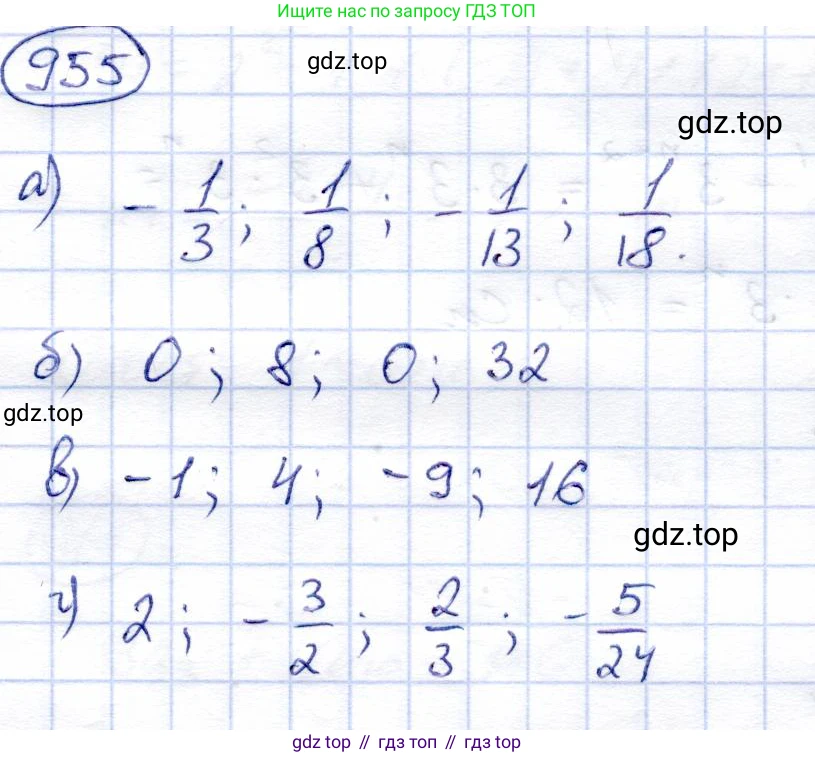 Ищите нас по запросу ГДЗ ТОП
955
gdz.top
gdz.top
а) -1/3; 1/8; -1/13; 1/18.
б) 0; 8; 0; 32
gdz.top
в) -1; 4; -9; 16
gdz.top
г) 2; -3/2; 2/3; -5/24
gdz top // гдз топ // gdz top